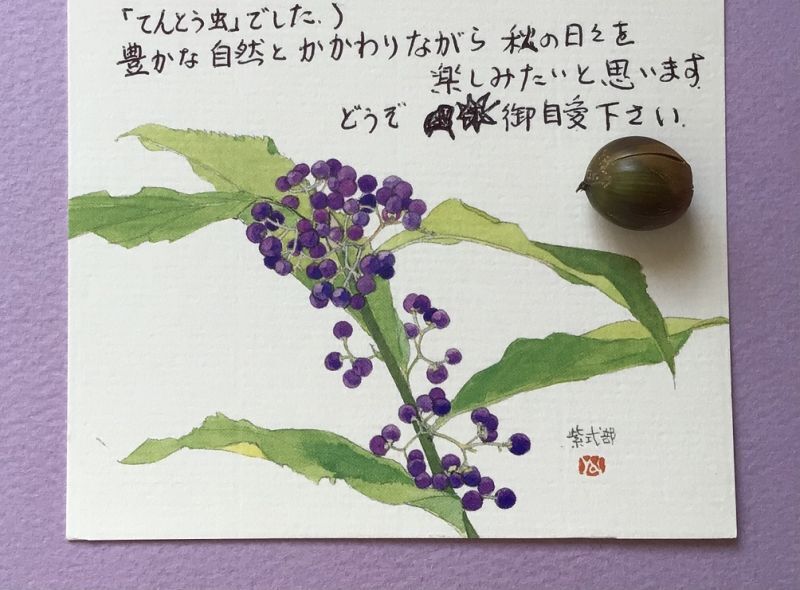 「てんとう虫」でした。)
豊かな自然とかかわりながら 秋の日々を
楽しみたいと思います.
どうぞ 御自愛下さい.
紫式部